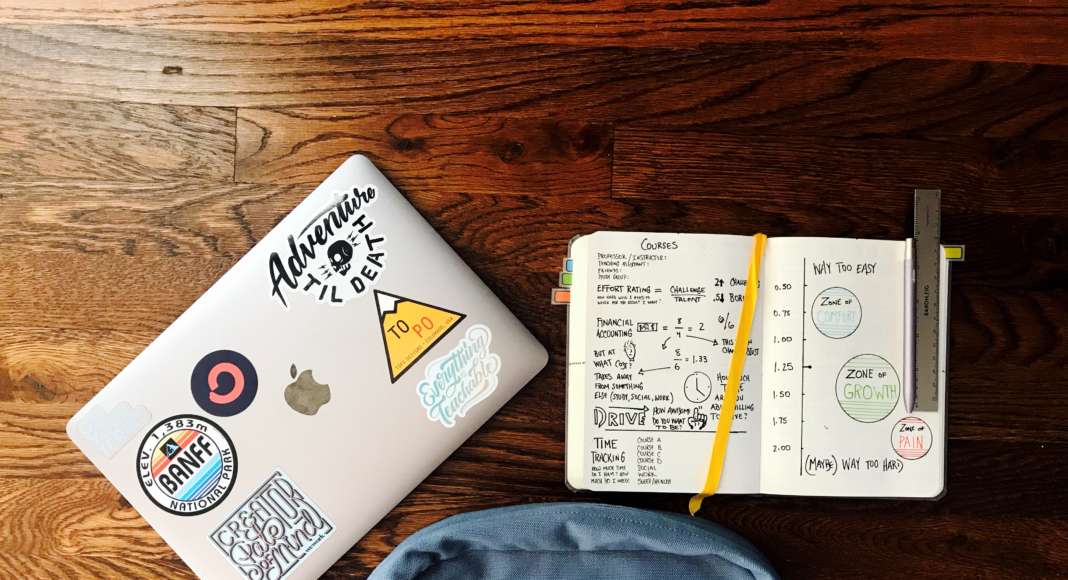 Adventure
TIL DEATH
TO PO
Everything
is
Teachable
ELEV. 1,383m
BANFF
NATIONAL PARK
CREATOR
State
of Mind
COURSES
PROFESSOR / INSTRUCTOR:
TEACHING ASSISTANT:
FRIENDS:
STUDY GROUP:
EFFORT RATING = CHALLENGE
TALENT
2↑
.5↓
FINANCIAL
ACCOUNTING
= 8/4 = 2
6/6
8/6 = 1.33
BUT AT
WHAT COST?
TAKES AWAY
FROM SOMETHING
ELSE (STUDY, SOCIAL, WORK)
HOW MUCH
DRIVE
HOW AWESOME
DO YOU WANT
TO BE?
TIME
TRACKING
HOW MUCH TIME
DO I HAVE? HOW
MUCH DO I NEED?
COURSE A
COURSE B
COURSE C
COURSE D
SOCIAL
WORK
WAY TOO EASY
0.50
0.75
1.00
1.25
1.50
1.75
2.00
ZONE OF
COMFORT
ZONE OF
GROWTH
ZONE OF
PAIN
(MAYBE) WAY TOO HARD